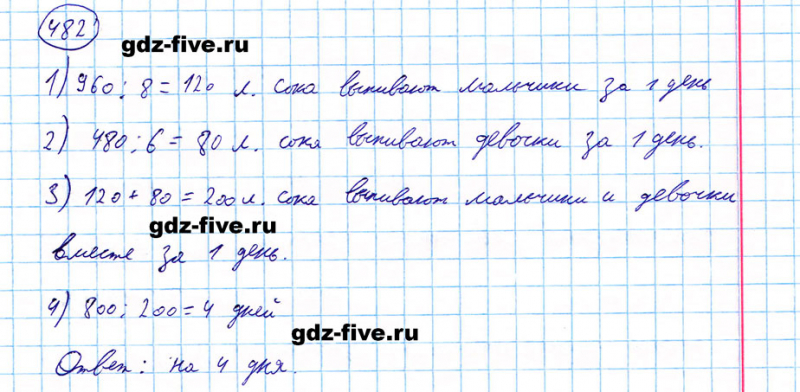 482
gdz-five.ru
1) 960 : 8 = 120 л. сока выпивают мальчики за 1 день
2) 480 : 6 = 80 л. сока выпивают девочки за 1 день.
3) 120 + 80 = 200 л. сока выпивают мальчики и девочки
gdz-five.ru
вместе за 1 день.
4) 800 : 200 = 4 дней
gdz-five.ru
Ответ: на 4 дня.